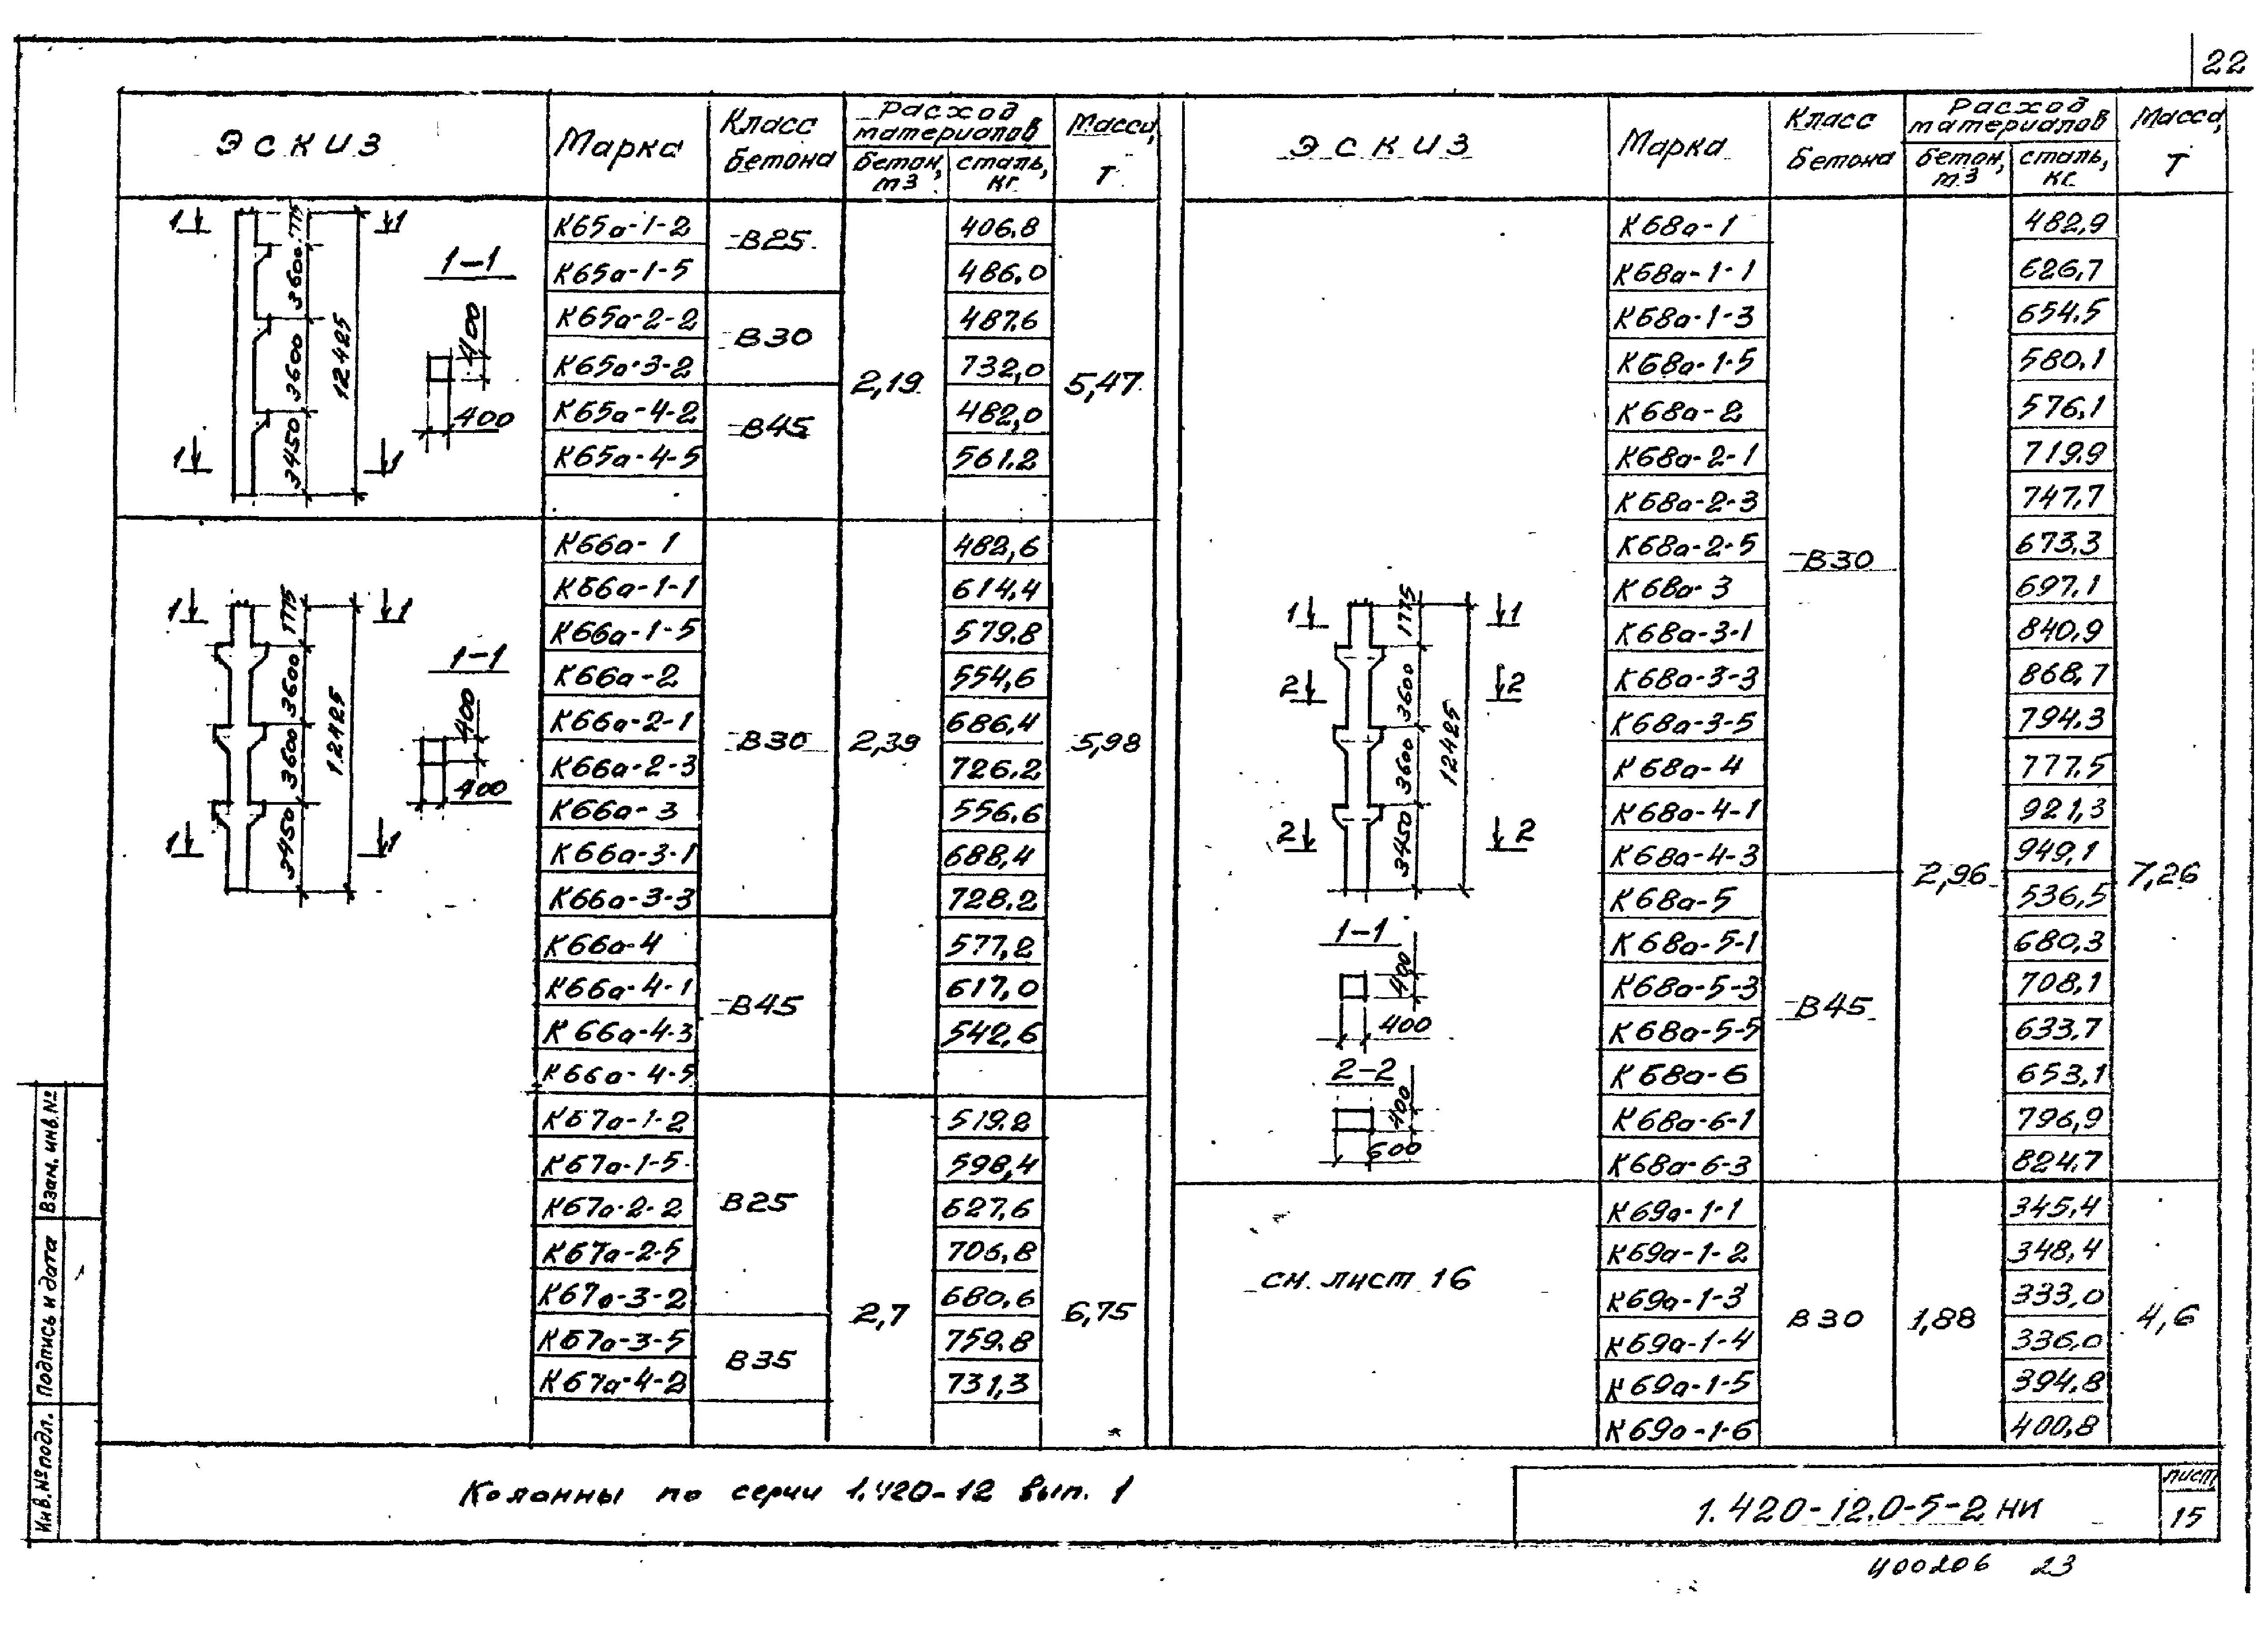 22
Эскиз | Марка | Класс бетона | Расход материалов: бетон, м3 | сталь, кг | Масса, т
1 1
1-1
775
3600
3600
3450
12425
400
400
1 1
К65а-1-2 | В25 | 2,19 | 406.8 | 5,47
К65а-1-5 | 486.0
К65а-2-2 | В30 | 487.6
К65а-3-2 | 732,0
К65а-4-2 | В45 | 482,0
К65а-4-5 | 561.2
1 1
1-1
1775
3600
3600
3450
12425
400
400
1 1
К66а-1 | В30 | 2,39 | 482,6 | 5,98
К66а-1-1 | 614,4
К66а-1-5 | 579.8
К66а-2 | 554,6
К66а-2-1 | 686,4
К66а-2-3 | 726.2
К66а-3 | 556.6
К66а-3-1 | 688,4
К66а-3-3 | 728.2
К66а-4 | В45 | 577,2
К66а-4-1 | 617,0
К66а-4-3 | 542,6
К66а-4-5
К67а-1-2 | В25 | 2,7 | 519.2 | 6,75
К67а-1-5 | 598,4
К67а-2-2 | 627,6
К67а-2-5 | 706,8
К67а-3-2 | 680,6
К67а-3-5 | В35 | 759.8
К67а-4-2 | 731,3
Эскиз | Марка | Класс бетона | Расход материалов: бетон, м3 | сталь, кг | Масса, т
1 1
2 2
1775
3600
3600
3450
12425
2 2
1-1
400
400
2-2
400
600
К68а-1 | В30 | 2,96 | 482,9 | 7,26
К68а-1-1 | 626,7
К68а-1-3 | 654.5
К68а-1-5 | 580,1
К68а-2 | 576,1
К68а-2-1 | 719.9
К68а-2-3 | 747.7
К68а-2-5 | 673.3
К68а-3 | 697.1
К68а-3-1 | 840,9
К68а-3-3 | 868,7
К68а-3-5 | 794.3
К68а-4 | 777.5
К68а-4-1 | 921,3
К68а-4-3 | 949,1
К68а-5 | В45 | 536,5
К68а-5-1 | 680.3
К68а-5-3 | 708,1
К68а-5-5 | 633.7
К68а-6 | 653,1
К68а-6-1 | 796,9
К68а-6-3 | 824.7
см. лист 16
К69а-1-1 | В30 | 1,88 | 345,4 | 4,6
К69а-1-2 | 348,4
К69а-1-3 | 333,0
К69а-1-4 | 336,0
К69а-1-5 | 394,8
К69а-1-6 | 400,8
Колонны по серии 1.420-12 вып. 1
1.420-12.0-5-2НИ
лист
15
400206 23
Инв.№подл. Подпись и дата Взам. инв.№